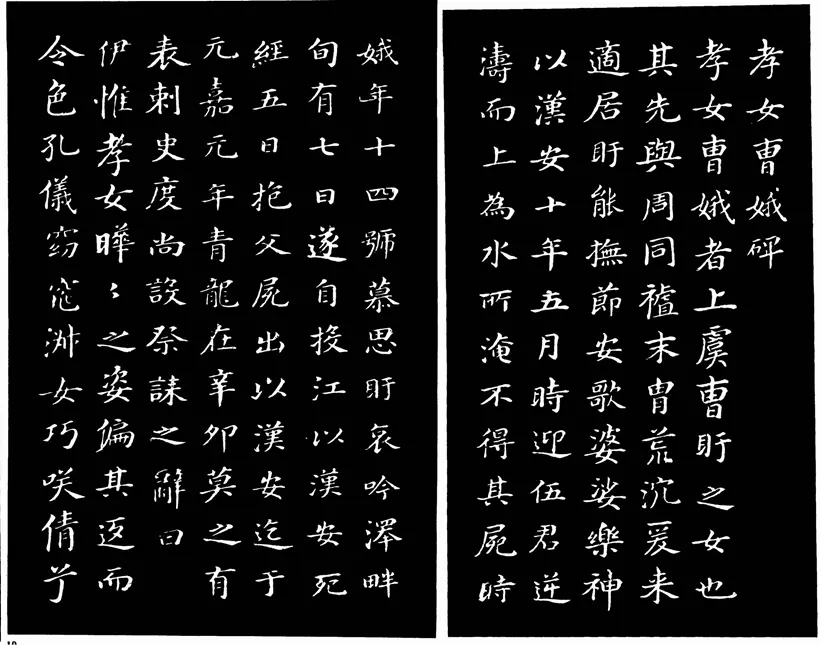 孝女曹娥碑
孝女曹娥者上虞曹盱之女也
其先與周同禮末胄荒沉爰来
適居盱能撫節安歌婆娑樂神
以漢安十年五月時迎伍君逆
濤而上為水所淹不得其屍時
娥年十四號慕思盱哀吟澤畔
旬有七日遂自投江以漢安死
經五日抱父屍出以漢安迄于
元嘉元年青龍在辛卯莫之有
表刺史度尚設祭誄之辭曰
伊惟孝女曄〻之姿偏其返而
令色孔儀窈窕淑女巧咲倩兮
10